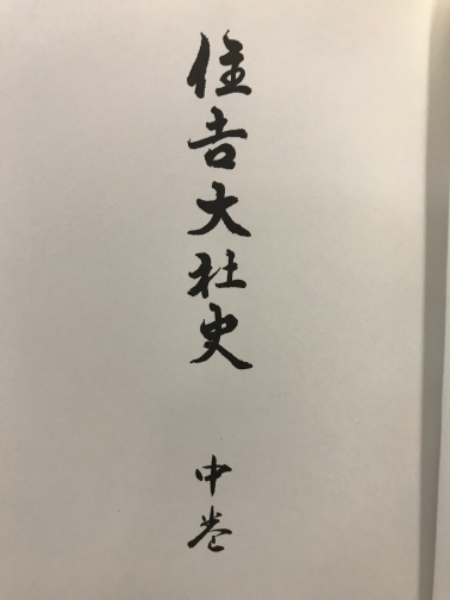 住吉大社史
中巻